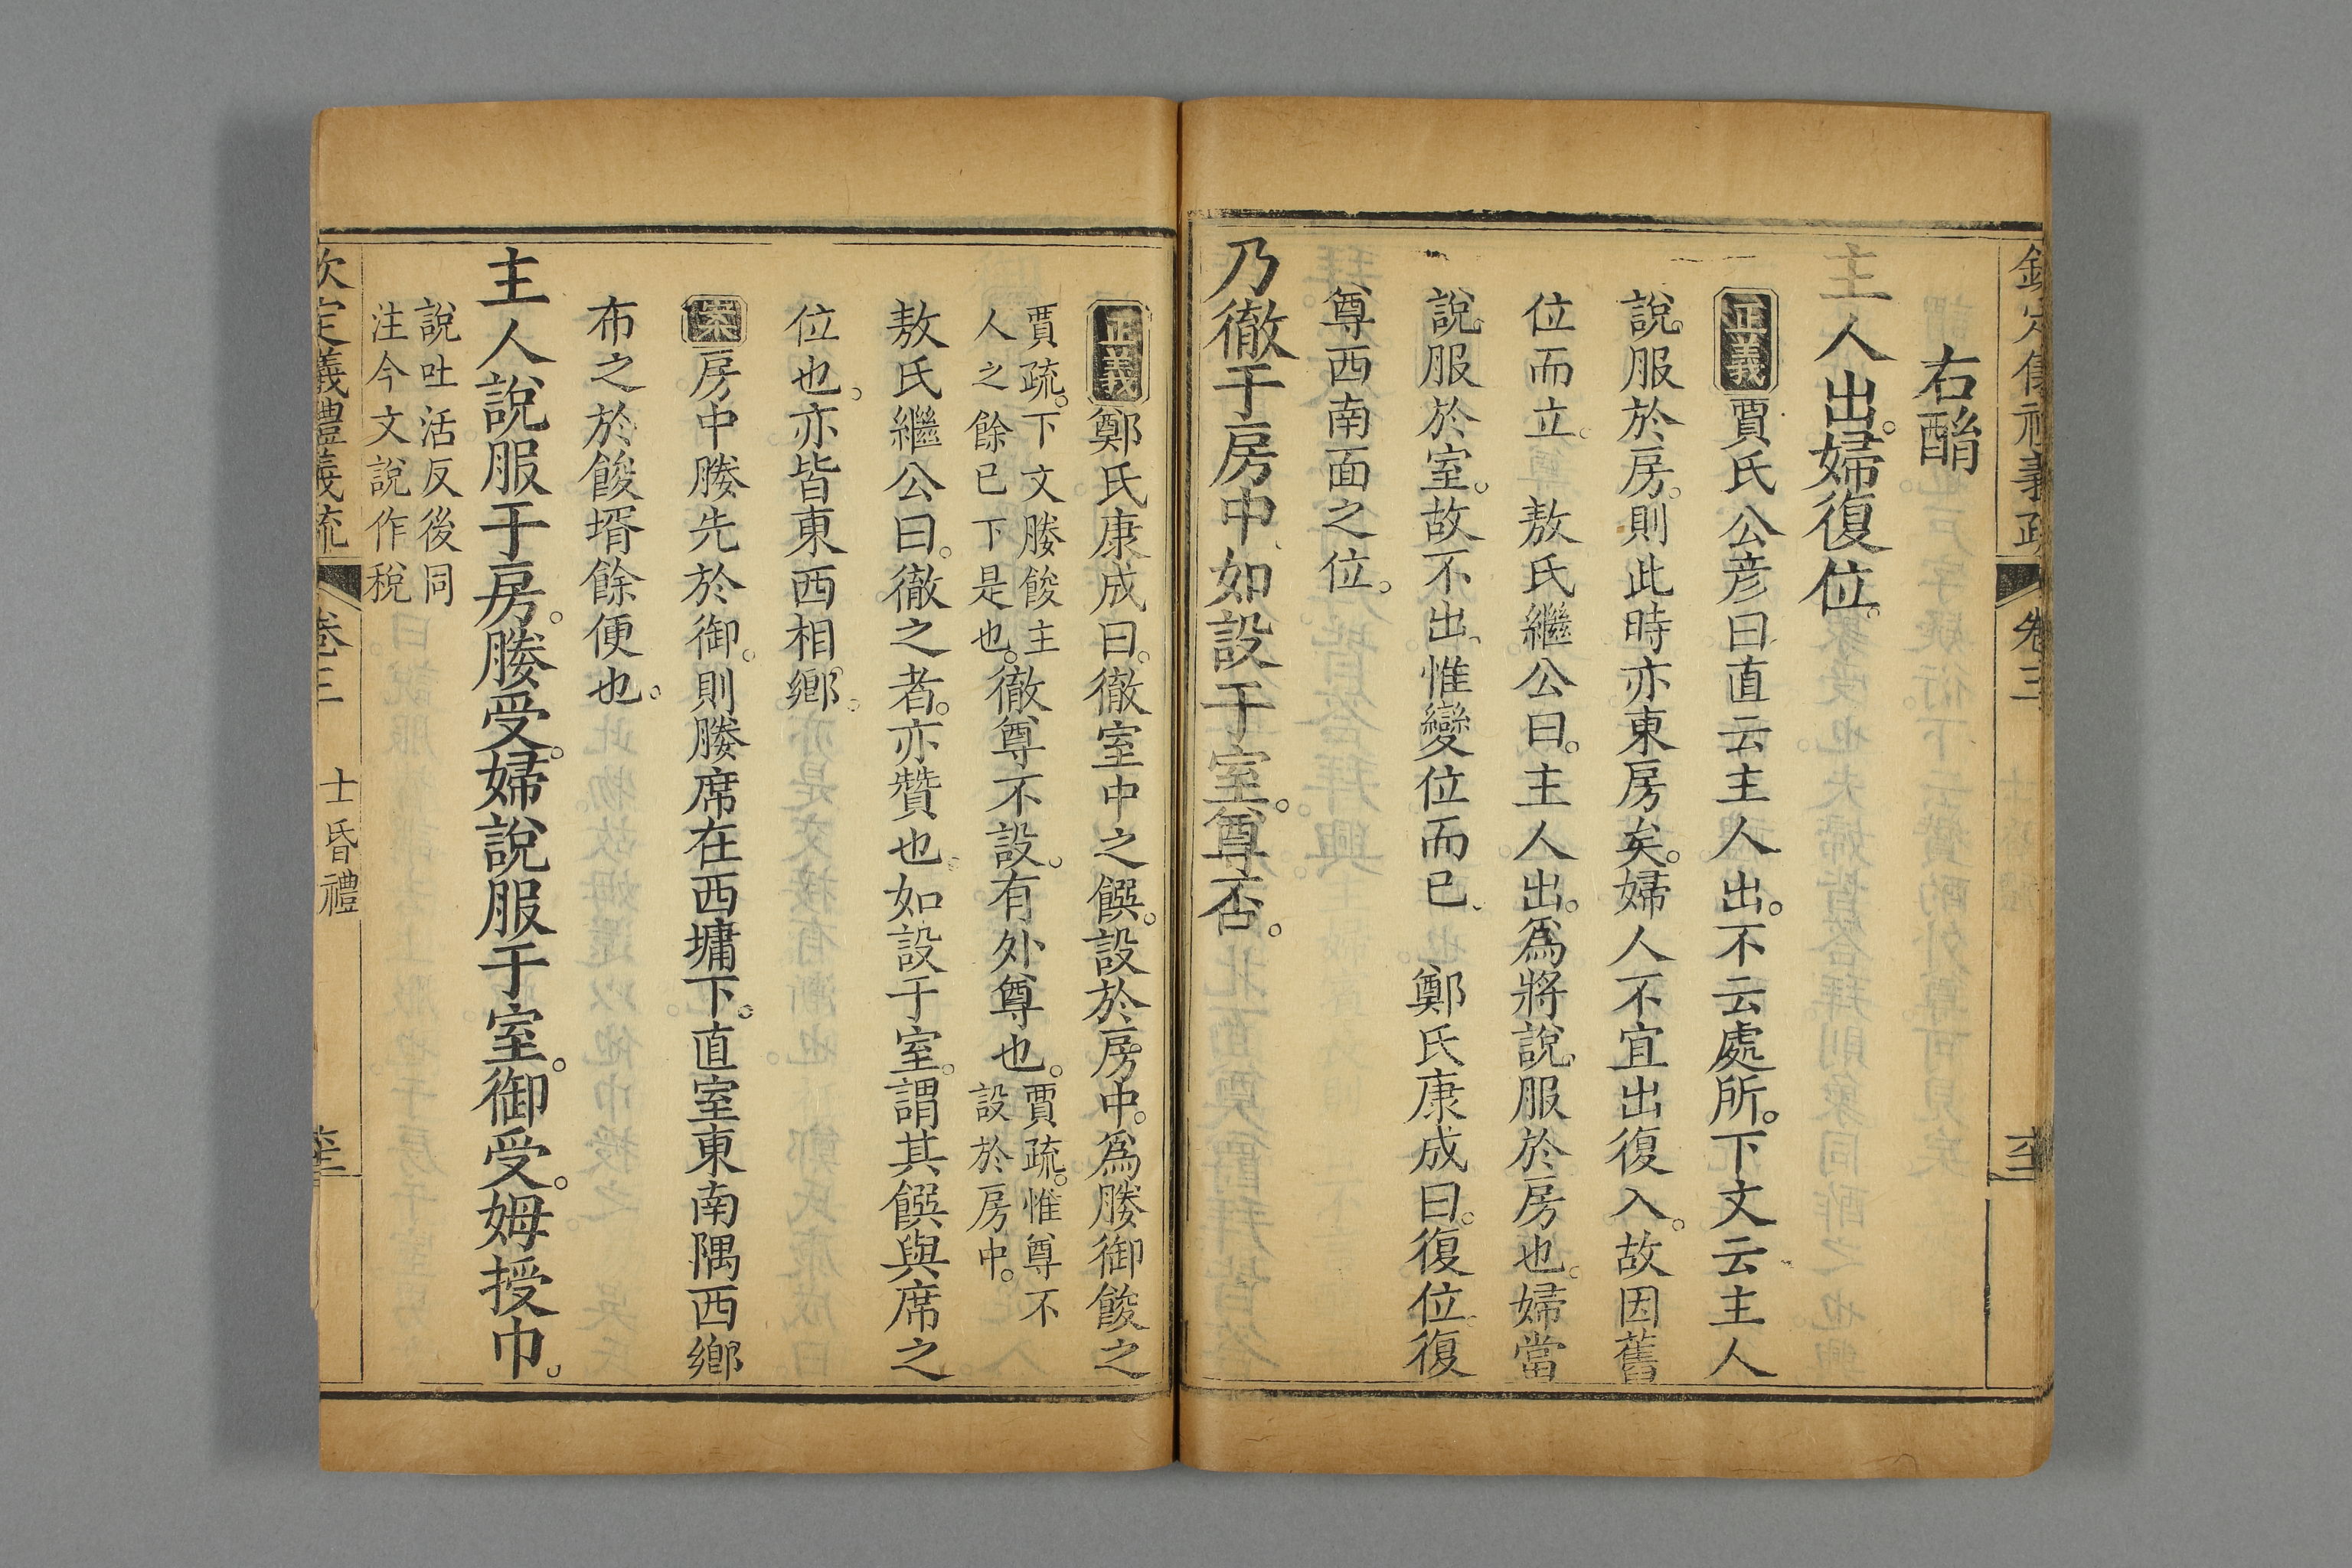 欽定儀禮義疏 卷三
右酳
主人出。婦復位。
正義賈氏公彥曰。直云主人出。不云處所。下文云主人
說服於房。則此時亦東房矣。婦人不宜出復入。故因舊
位而立。 敖氏繼公曰。主人出。爲將說服於房也。婦當
說服於室。故不出、惟變位而已、 鄭氏康成曰。復位。復
尊西南面之位。
乃徹于房中、如設于室。尊否。
正義鄭氏康成曰。徹室中之饌。設於房中。爲媵御餕之
賈疏。下文媵餕主
人之餘已下是也。徹尊不設。有外尊也。賈疏。惟尊不
設於房中。
敖氏繼公曰。徹之者。亦贊也。如設于室。謂其饌與席之
位也。亦皆東西相鄉。
案房中媵先於御。則媵席在西墉下。直室東南隅西鄉
布之於餕壻餘便也。
主人說服于房。媵受。婦說服于室。御受。姆授巾。
說吐活反後同
注今文說作稅
欽定義禮義疏 卷三 士昏禮